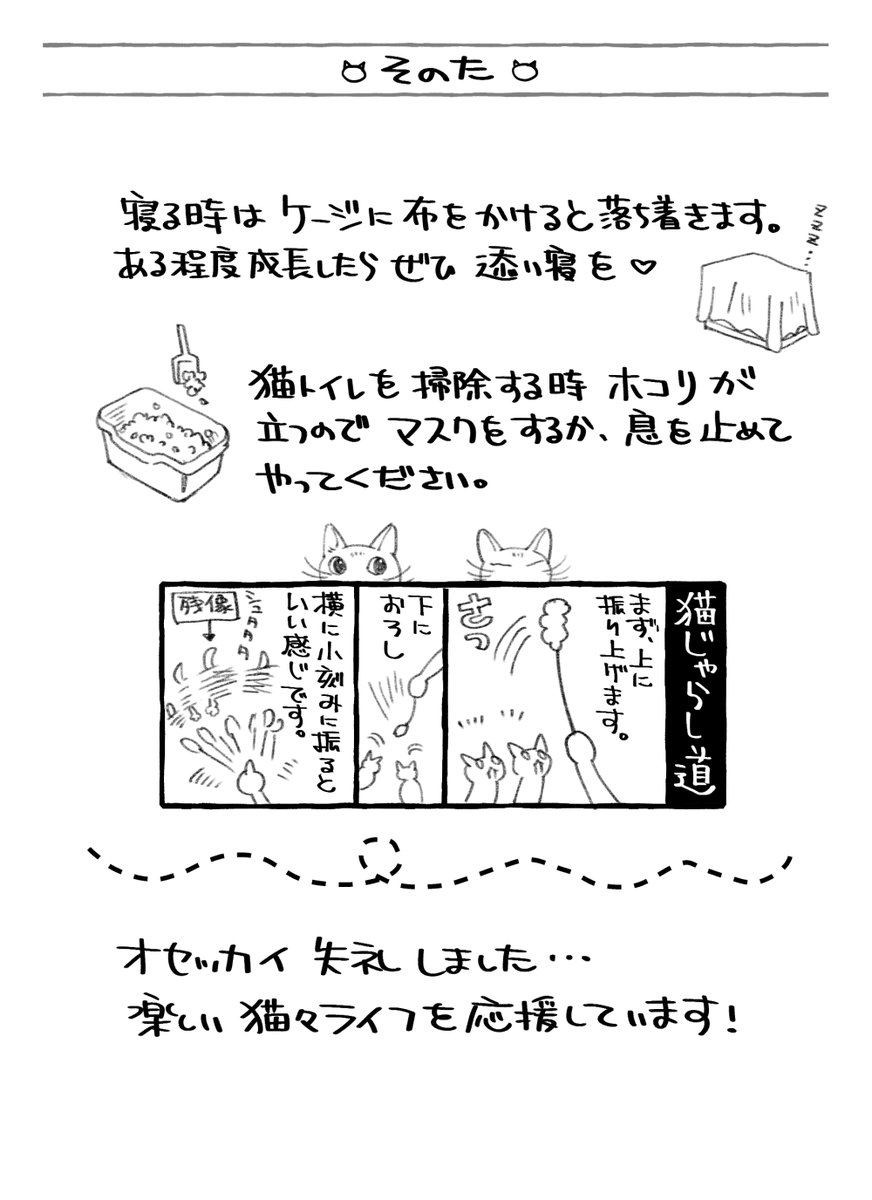 そのた
寝る時は ケージに 布を かけると 落ち着きます。
ある程度 成長したら ぜひ 添い寝を ♡
zzz
猫トイレを 掃除する時 ホコリ が
立つので マスクをするか、息を止めて
やってください。
猫じゃらし道
まず、上に
振り上げます。
さっ
下に
おろし
横に小刻みに振ると
いい感じです。
シュタタタタ
残像
オセッカイ 失礼 しました…
楽しい 猫々ライフを 応援しています!